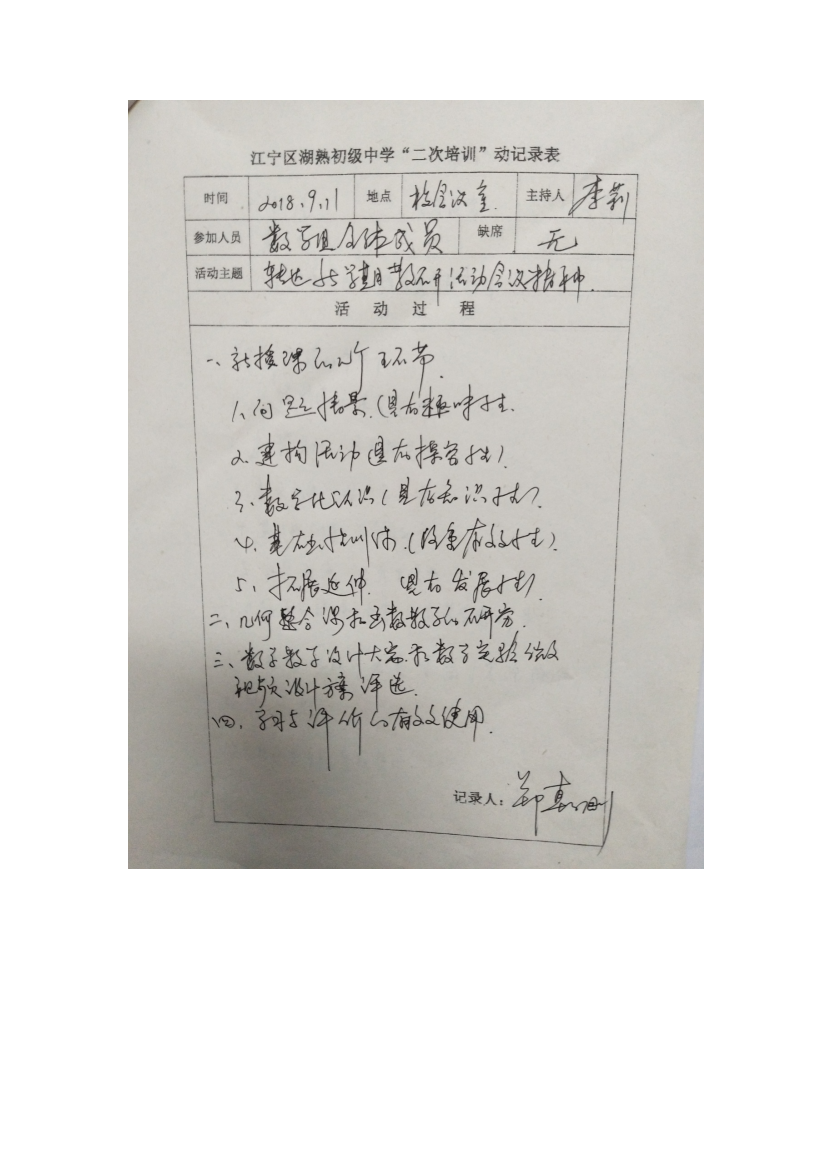 江宁区湖熟初级中学“二次培训”动记录表
时间 2018.9.11 地点 校会议室. 主持人 李莉
参加人员 数学组全体成员 缺席 无
活动主题 转达新学期教研活动会议精神.
活动过程
一、新授课的五个环节.
1、问题情景.(具有趣味性.
2、建构活动 具有操作性).
3、数学化认识(具有知识性).
4、基础训练.(注重有效性).
5、拓展延伸. 具有发展性)
二、几何整合课和函数教学的研究.
三、数学教学设计大赛和数学实验
视频设计方案评选.
四、学习与评价的有效使用.
记录人: 郑